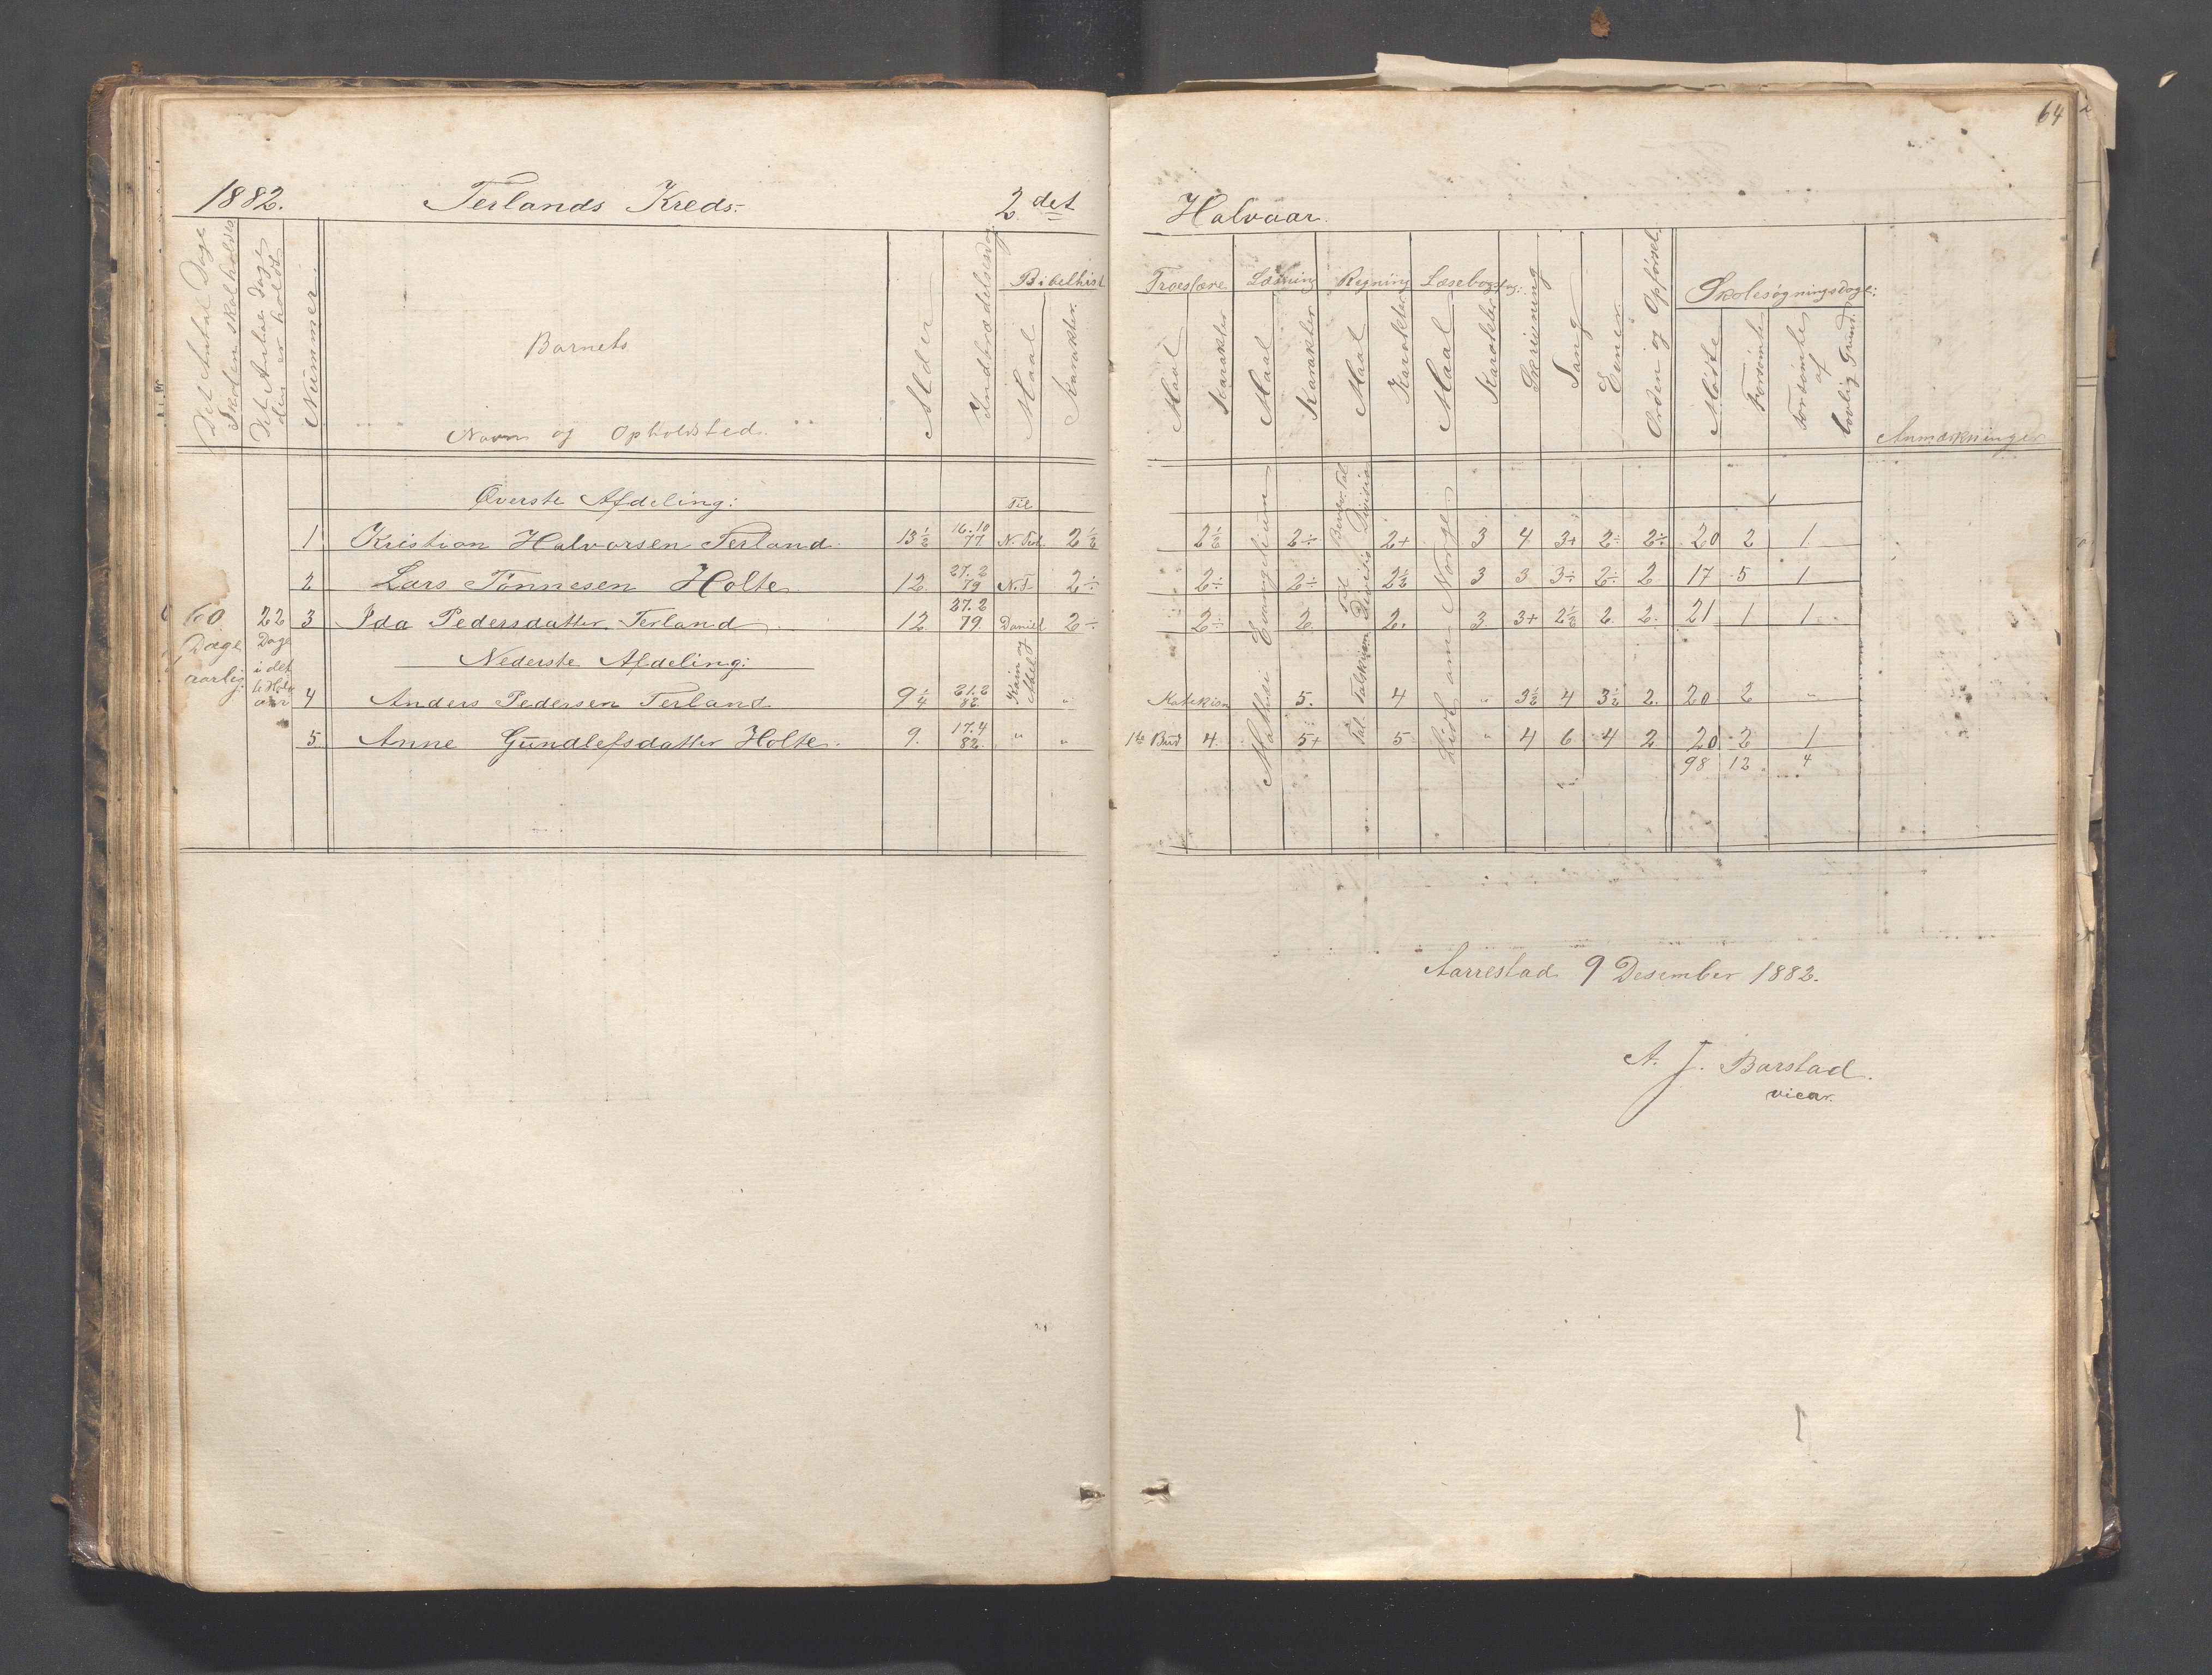 64
1882. Terlands Kreds. 2det Halvaar.
Det Antal Dage Skolen skal holdes
Det Antal Dage den er holdt
Nummer
Barnets
Navn og Opholdsted.
Alder
Indtrædelsesdag
Bibelhist
Maal
Karakter
Troeslære
Maal
Karakter
Læsning
Maal
Karakter
Regning
Maal
Karakter
Læsebogstog:
Maal
Karakter
Skrivning
Sang
Evner
Orden og Opførsel
Skolesøgningsdage:
Mødte
Forsømte
Forsømte af lovlig Grund.
Anmærkninger
Øverste Afdeling: Til
1 Kristian Halvorsen Terland 13½ 16.10 77 N. Test. 2½ 2½ 2÷ 2+ 3 4 3+ 2÷ 2÷ 20 2 1
2 Lars Tønnesen Holte 12 27.2 79 N.T. 2÷ 2÷ 2÷ 2½ 3 3 3÷ 2÷ 2 17 5 1
60 Dage aarlig
22 Dage i det
3 Ida Pedersdatter Terland 12 27.2 79. Daniel 2÷ 2÷ 2. 2. 3 3+ 2½ 2. 2. 21 1 1
Nederste Afdeling: Kain og Abel
4 Anders Pedersen Terland 9¼ 21.2 82. " Katekism 5. 4 " 3½ 4 3½ 2. 20 2 "
5 Anne Gundlefsdatter Holte. 9. 17.4 82. " " 1te Bud 4. 5+ 5 " 4 6 4 2 20 2 1
98 12 4
Matthæi Evangelium
Til Divisio
Lidt om Norge
Aarrestad 9 Desember 1882.
A. J. Barstad.
vicar.